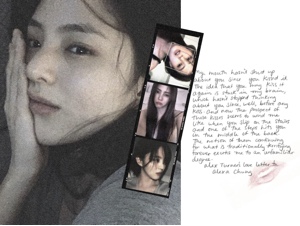 "My mouth hasn't shut up
about you since you kissed it.
The idea that you may kiss it
again is stuck in my brain,
which hasn't stopped thinking
about you since, well, before any
kiss. And now the prospect of
those kisses seems to wind me
like when you slip on the stairs
and one of the steps hits you
in the middle of the back.
The notion of them continuing
for what is traditionally terrifying
forever excites me to an unfamiliar
degree.
Alex Turner's love letter to
Alexa Chung